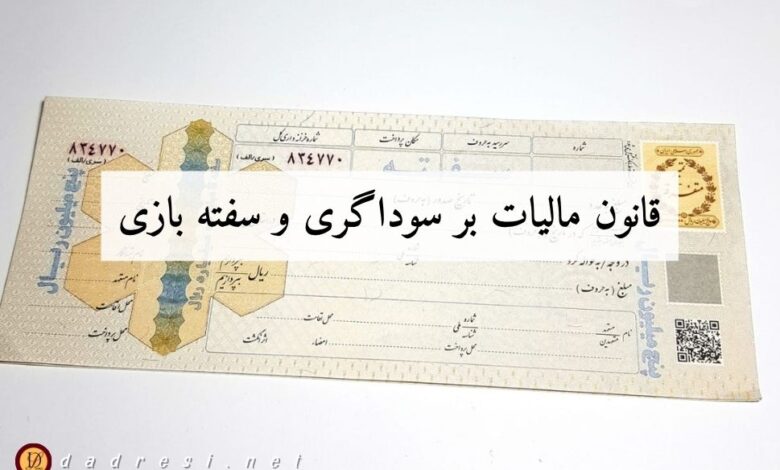 شماره سررسید به حروف مکان پرداخت شماره خزانه داری کل
۸۳۴۷۷۰ (سری/الف) ۸۳۴۷۷۰ (سری/الف)
پنج میلیون ریال
قانون مالیات بر سوداگری و سفته بازی
در وجه / به حواله کرد
مبلغ (به حروف)
ریال بپردازم
بپردازیم
نام متعهد
محل اقامت
محل پرداخت
نام متعهد
متعهدین
شماره ملی
شناسه
محل اقامت
محل پرداخت
امضار
اثر انگشت
پنج میلیون ریال
dadresi.net